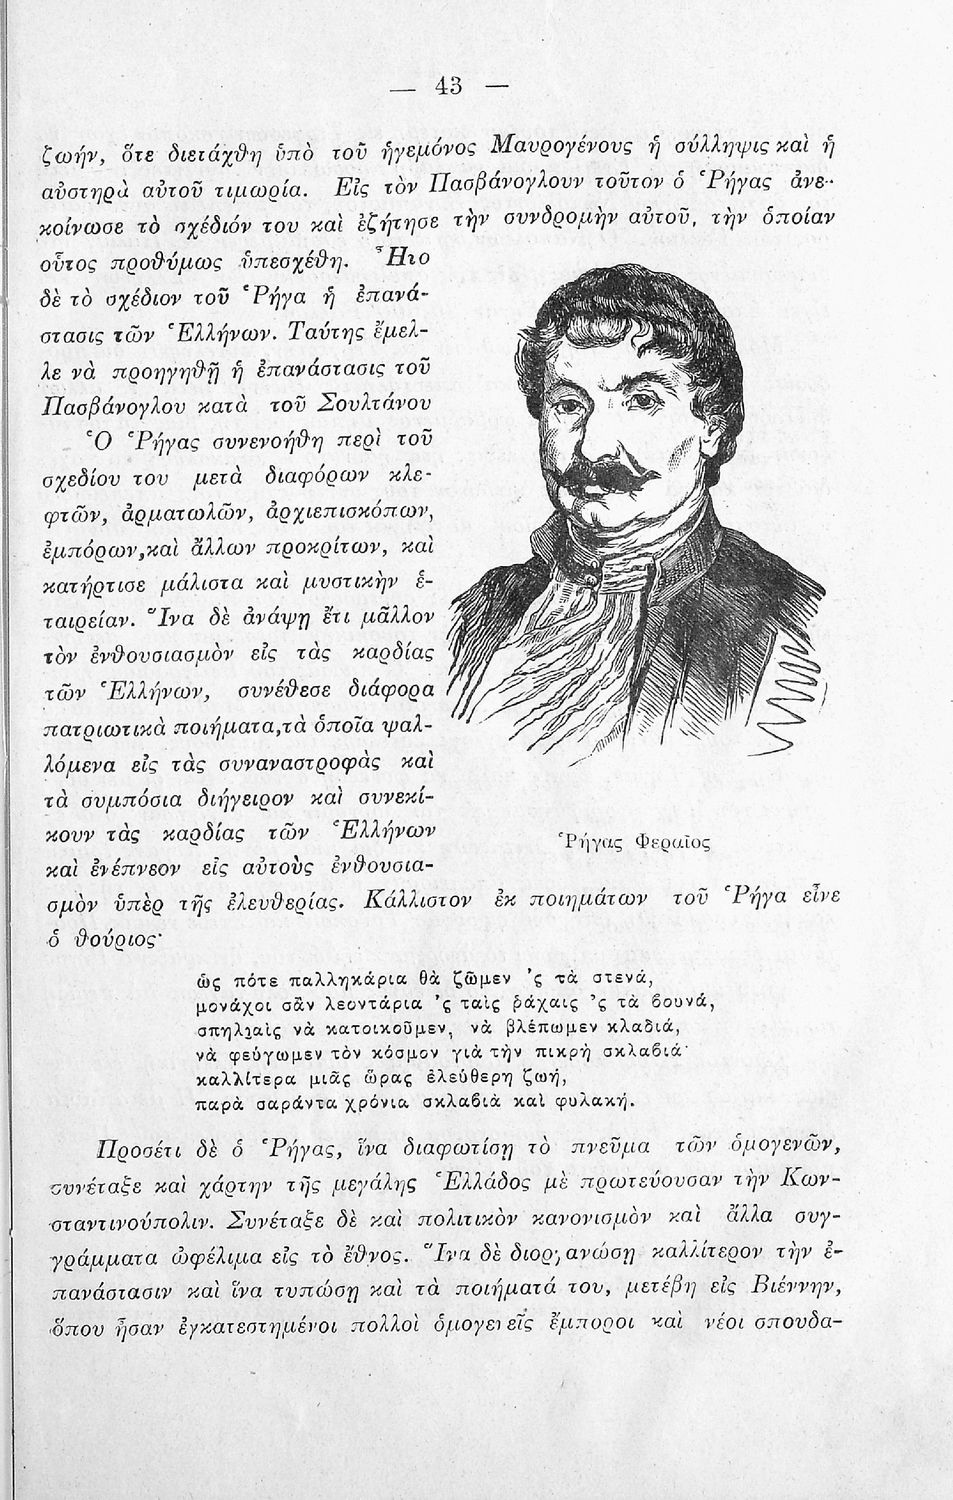 — 43 —
ζωήν, ὅτε διετάχθη ὑπὸ τοῦ ἡγεμόνος Μαυρογένους ἡ σύλληψις καὶ ἡ
αὐστηρὰ αὐτοῦ τιμωρία. Εἰς τὸν Πασβάνογλουν τοῦτον ὁ Ῥήγας ἀνε-
κοίνωσε τὸ σχέδιόν του καὶ ἐζήτησε τὴν συνδρομὴν αὐτοῦ, τὴν ὁποίαν
οὗτος προθύμως ὑπεσχέθη. Ἦτο
δὲ τὸ σχέδιον τοῦ Ῥήγα ἡ ἐπανά-
στασις τῶν Ἑλλήνων. Ταύτης ἔμελ-
λε νὰ προηγηθῇ ἡ ἐπανάστασις τοῦ
Πασβάνογλου κατὰ τοῦ Σουλτάνου
Ὁ Ῥήγας συνενοήθη περὶ τοῦ
σχεδίου του μετὰ διαφόρων κλε-
φτῶν, ἀρματωλῶν, ἀρχιεπισκόπων,
ἐμπόρων,καὶ ἄλλων προκρίτων, καὶ
κατήρτισε μάλιστα καὶ μυστικὴν ἑ-
ταιρείαν. Ἵνα δὲ ἀνάψῃ ἔτι μᾶλλον
τὸν ἐνθουσιασμὸν εἰς τὰς καρδίας
τῶν Ἑλλήνων, συνέθεσε διάφορα
πατριωτικὰ ποιήματα,τὰ ὁποῖα ψαλ-
λόμενα εἰς τὰς συναναστροφὰς καὶ
τὰ συμπόσια διήγειρον καὶ συνεκί-
νουν τὰς καρδίας τῶν Ἑλλήνων
καὶ ἐνέπνεον εἰς αὐτοὺς ἐνθουσια-
Ῥήγας Φεραῖος
σμὸν ὑπὲρ τῆς ἐλευθερίας. Κάλλιστον ἐκ ποιημάτων τοῦ Ῥήγα εἶνε
ὁ θούριος·
ὡς πότε παλληκάρια θὰ ζῶμεν 'ς τὰ στενά,
μονάχοι σὰν λεοντάρια 'ς ταὶς ῥάχαις 'ς τὰ βουνά,
σπηλῃαὶς νὰ κατοικοῦμεν, νὰ βλέπωμεν κλαδιά,
νὰ φεύγωμεν τὸν κόσμον γιὰ τὴν πικρὴ σκλαβιά·
καλλίτερα μιᾶς ὥρας ἐλεύθερη ζωή,
παρὰ σαράντα χρόνια σκλαβιὰ καὶ φυλακή.
Προσέτι δὲ ὁ Ῥήγας, ἵνα διαφωτίσῃ τὸ πνεῦμα τῶν ὁμογενῶν,
συνέταξε καὶ χάρτην τῆς μεγάλης Ἑλλάδος μὲ πρωτεύουσαν τὴν Κων-
σταντινούπολιν. Συνέταξε δὲ καὶ πολιτικὸν κανονισμὸν καὶ ἄλλα συγ-
γράμματα ὠφέλιμα εἰς τὸ ἔθνος. Ἵνα δὲ διοργανώσῃ καλλίτερον τὴν ἐ-
πανάστασιν καὶ ἵνα τυπώσῃ καὶ τὰ ποιήματά του, μετέβη εἰς Βιέννην,
ὅπου ἦσαν ἐγκατεστημένοι πολλοὶ ὁμογενεῖς ἔμποροι καὶ νέοι σπουδα-